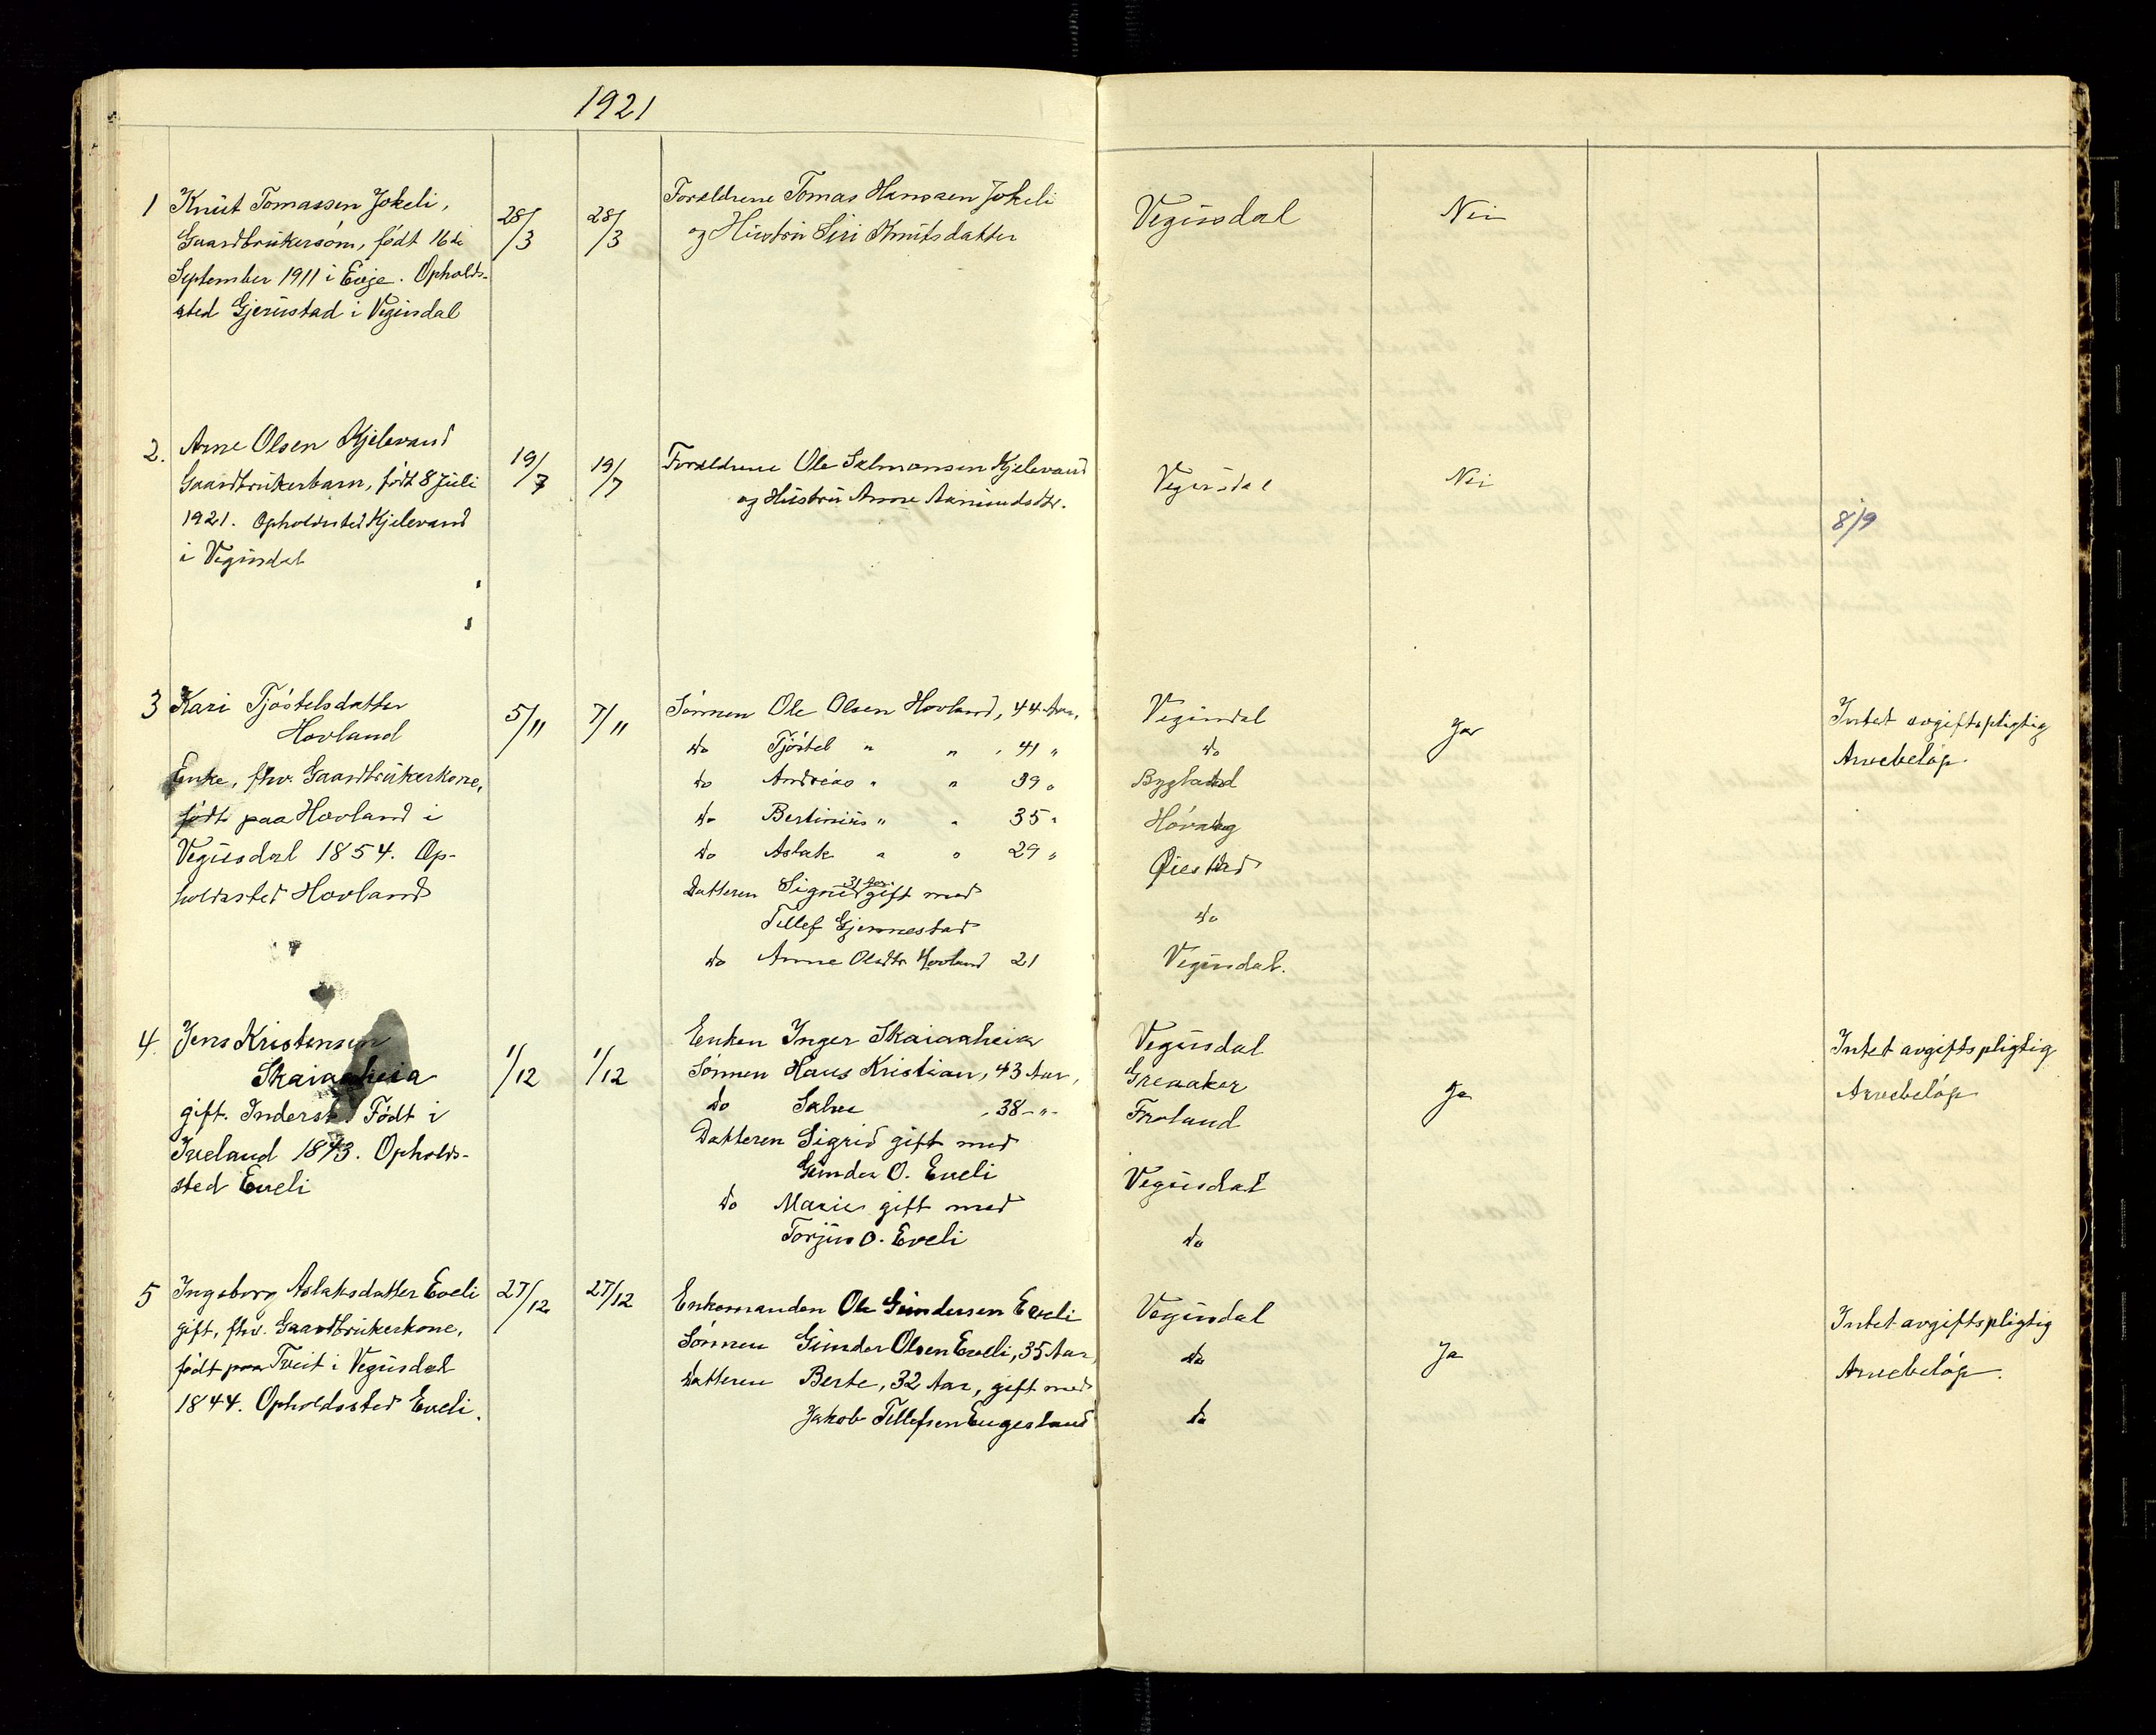 1921
1 Knut Tomassen Jokeli,
Gaardbrukersøn, født 16de
September 1911 i Evje. Opholds-
sted Gjerustad i Vegusdal
28/3
28/3
Foreldrene Tomas Hanssen Jokeli
og Hustru Siri Knutsdatter
Vegusdal
Nei
2. Arne Olsen Kjelevand
Gaardbrukerbarn, født 8 Juli
1921. Opholdssted Kjelevand
i Vegusdal
19/7
19/7
Foreldrene Ole Salmonsen Kjelevand
og Hustru Anne Aamundsdtr.
Vegusdal
Nei
8/9
3 Kari Tjøstelsdatter
Hovland
Enke, fhv. Gaardbrukerkone,
født paa Hovland i
Vegusdal 1854. Op-
holdssted Hovland
5/11
7/11
Sønnen Ole Olsen Hovland, 44 Aar,
do Tjøstel " " , 41 "
do Andreas " " 39 "
do Bertinius " " 35 "
do Aslak " " 29 "
Datteren Signe 31 Aar gift med
Tellef Gjennestad
do Anne Olsdtr Hovland 21
Vegusdal
do
Bygland
Høvaag
Øiestad
do
Vegusdal.
Ja
Intet avgiftspligtig
Arvebeløp.
4. Jens Kristensen
Skaiaaheia
gift. Inderst. Født i
Iveland 1843. Opholds-
sted Eveli
1/12
1/12
Enken Inger Skaiaaheia
Sønnen Hans Kristian, 43 Aar,
do Salve , 38 - " -
Datteren Sigrid gift med
Gunder O. Eveli
do Marie gift med
Torjus O. Eveli
Vegusdal
Greaaker
Froland
Vegusdal
do
Ja
Intet avgiftspligtig
Arvebeløp
5 Ingeborg Aslaksdatter Eveli
gift, fhv. Gaardbrukerkone,
født paa Tveit i Vegusdal
1844. Opholdssted Eveli.
27/12
27/12
Enkemanden Ole Gundersen Eveli
Sønnen Gunder Olsen Eveli, 35 Aar,
Datteren Berte, 32 Aar, gift med
Jakob Tellefsen Engesland
Vegusdal
do
do
Ja
Intet avgiftspligtig
Arvebeløp.